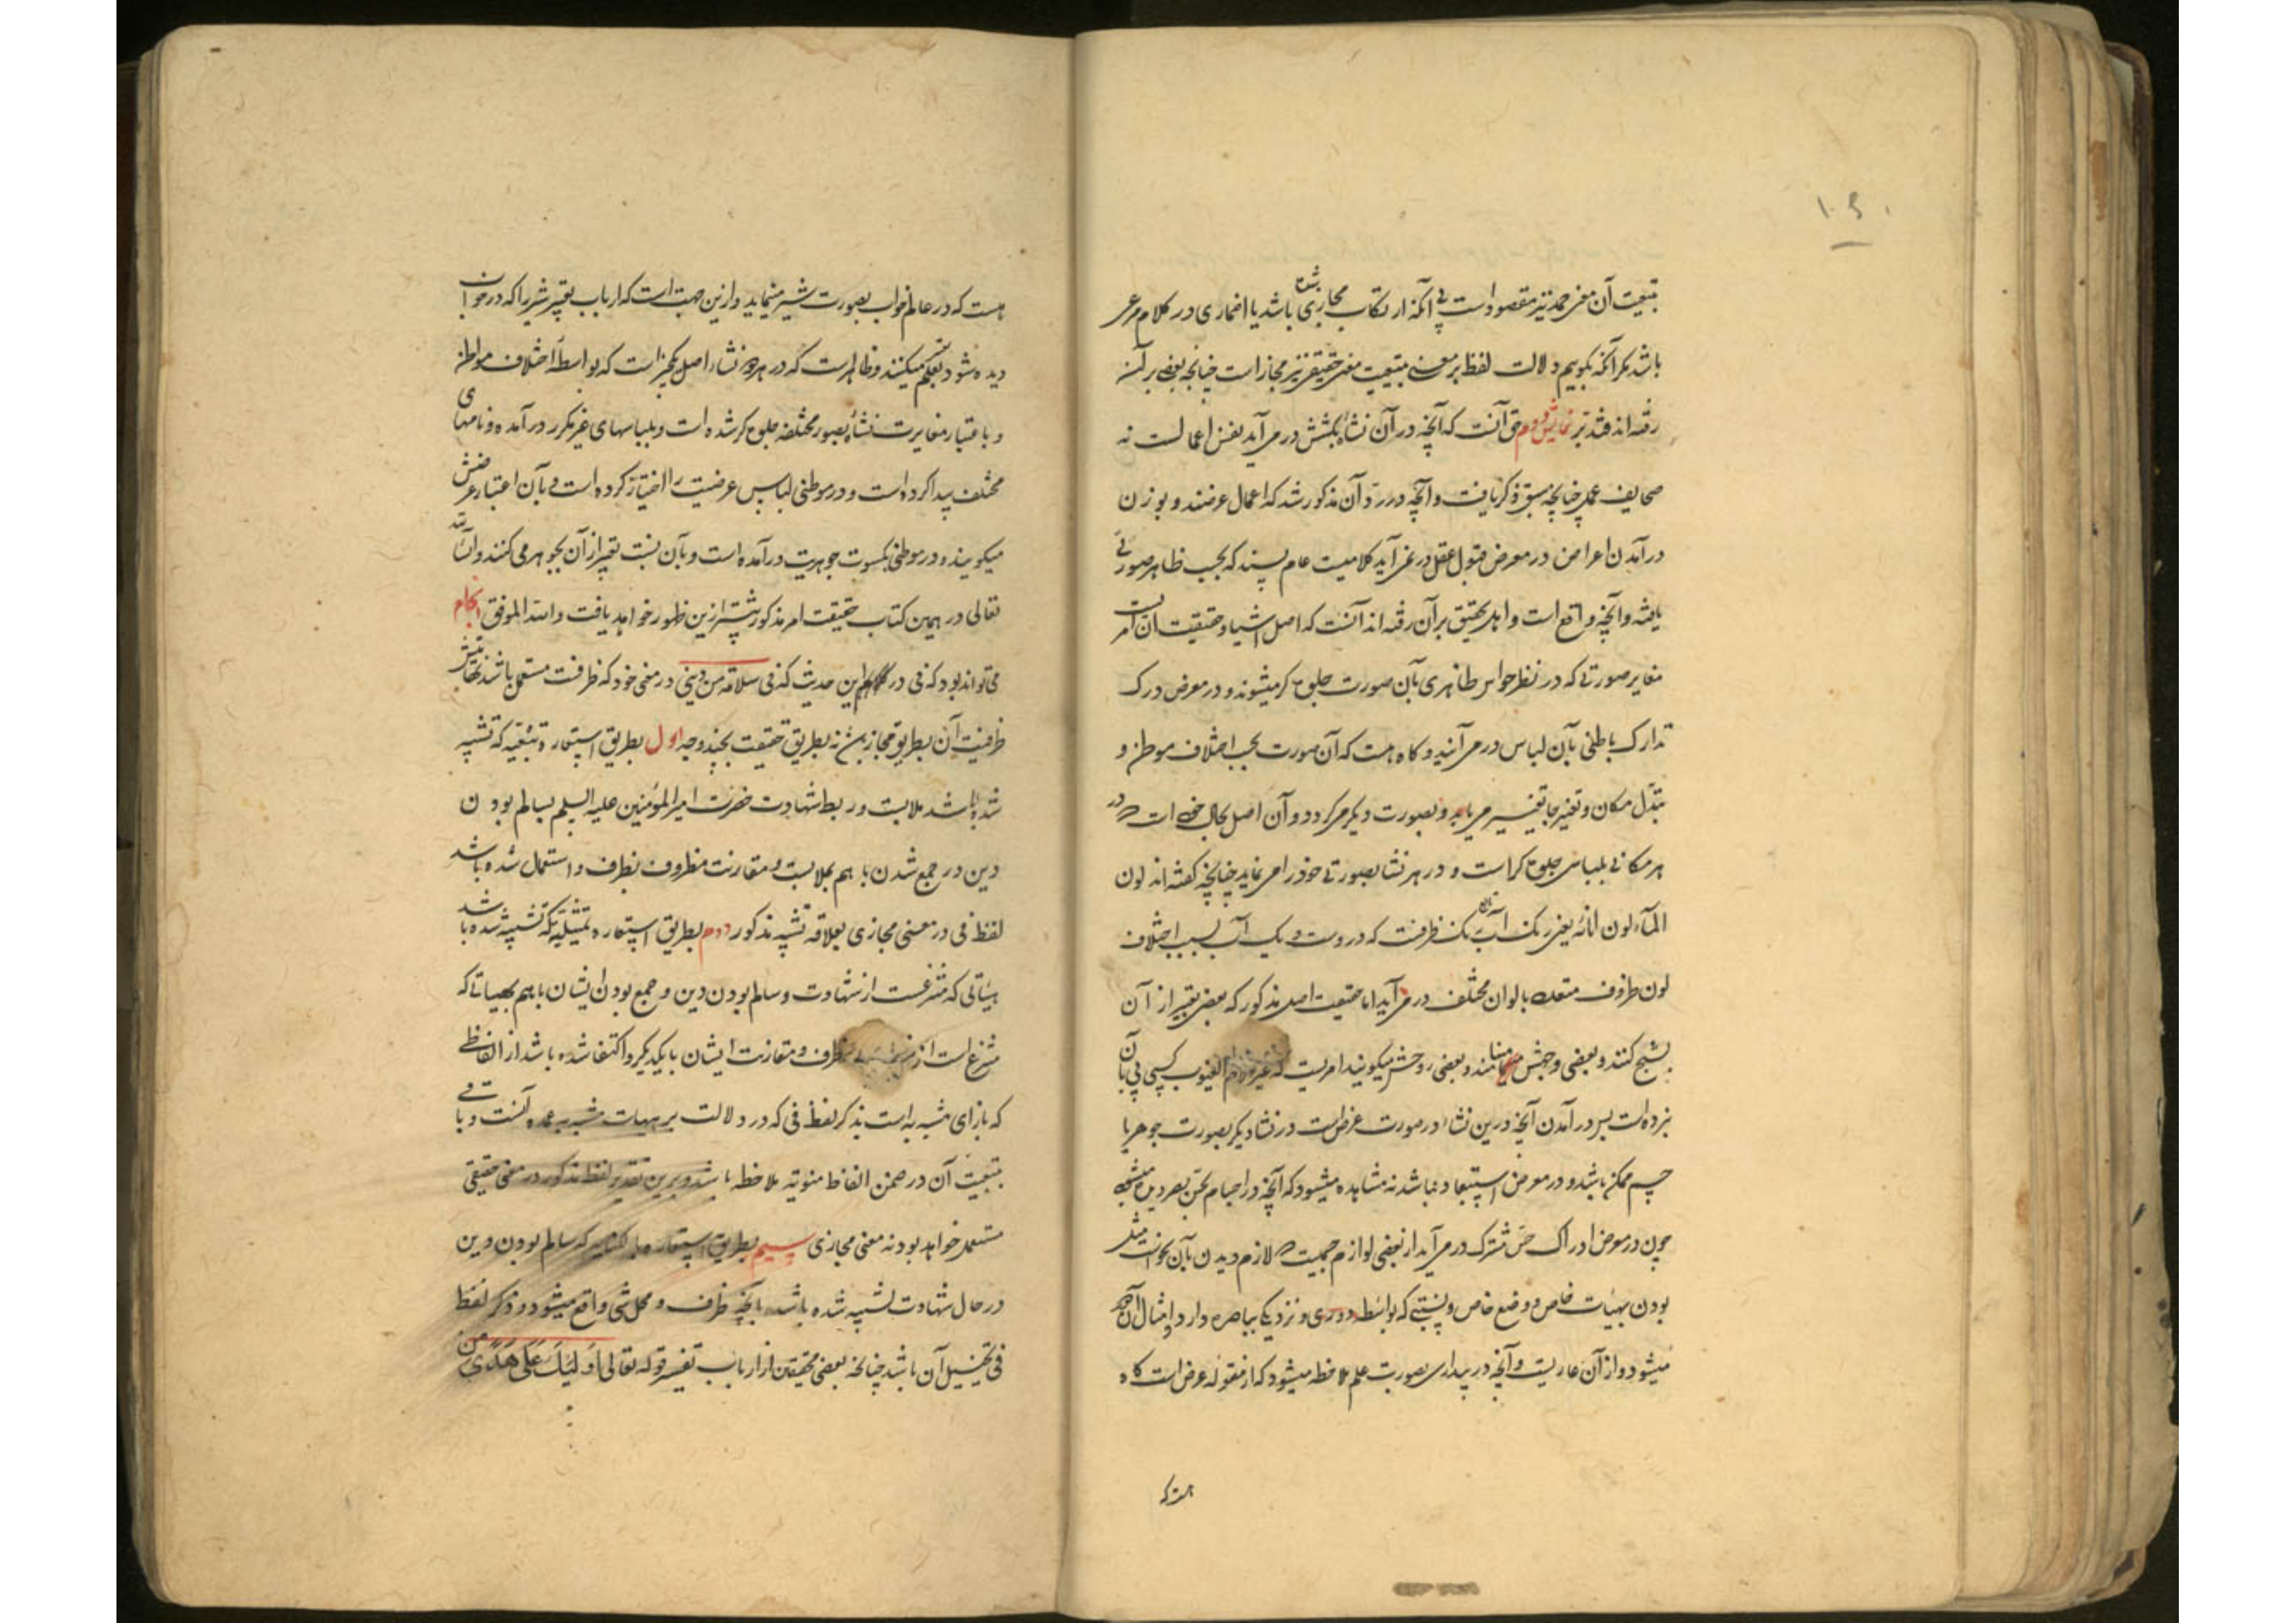 ۱۰۹
تبعیت آن معنی حمد نیز مقصود است بی آنکه ارتکاب مجازی شده باشد یا اضماری در کلام مرعی
باشد مکر آنکه بکوییم دلالت لفظ بر معنی بتبعیت معنی حقیقی نیز مجاز است چنانچه بعضی بر آن
رفته‌اند فتدبر نمایش دوم حق آنست که آنچه در آن نشاه بکشش در می‌آید نفس اعمالست نه
صحایف عمل چنانچه سبق ذکر یافت و آنچه در رد آن مذکور شد که اعمال عرضند و بوزن
در آمدن اعراض در معرض قبول عقل در نمی‌آید کلامیست عام پسند که بحسب ظاهر صورتی
یافته و آنچه واقع است و اهل تحقیق بر آن رفته‌اند آنست که اصل اشیا و حقیقت آن امریست
مغایر صورتی که در نظر حواس ظاهری بآن صورت جلوه کر میشوند و در معرض درک
تدارک باطنی بآن لباس در می‌آیند و کاه هست که آن صورت بحسب اختلاف موطن و
تبدل مکان و تغیر جا تغییر می‌یابد و بصورت دیکر میکردد و آن اصل بحال خود است و در
هر مکانی بلباسی جلوه کر است و در هر نشا بصورتی خود را می‌نماید چنانچه کفته‌اند لون
المآء لون انائه یعنی رنک آب رنک آن ظرفست که در وست و یک آب بسبب اختلاف
لون ظروف متعدده بالوان مختلف در می‌آید اما حقیقت اصل مذکور که بعضی تعبیر از آن
بشبح کنند و بعضی وجهش مینامند و بعضی روحش میکویند امریست که غیر علام الغیوب کسی پی بآن
نبرده است پس در آمدن آنچه درین نشا در صورت عرض است در نشا دیکر بصورت جوهر یا
جسم ممکن باشد و در معرض استبعاد نباشد نه مشاهده میشود که آنچه در اجسام بحس بصر دیده میشود
چون در معرض ادراک حس مشترک در می‌آید از بعضی لوازم جسمیت که لازم دیدن بآن نحو است مثل
بودن بهیئات خاص و وضع خاص و نسبتی که بواسطه دوری و نزدیکی بباصره دارد و امثال آن مجرد
میشود و از آن عاریست و آنچه در بیداری بصورت علم ملاحظه میشود که از مقوله عرض است کاه
هست که
هست که در عالم خواب بصورت شیر مینماید و ازین جهت است که ارباب تعبیر شیر را که در خواب
دیده شود بعلم تعبیر میکنند و ظاهرست که در هر دو نشاء اصل یکچیز است که بواسطه اختلاف مواطن
و باعتبار مغایرت نشاه بصور مختلفه جلوه کر شده است و بلباسهای غیر مکرر در آمده و نامهای
مختلف پیدا کرده است و در موطنی لباس عرضیت را اختیار کرده است و بآن اعتبار عرضش
میکویند و در موطنی بکسوت جوهریت در آمده است و بآن نسبت تعبیر از آن بجوهر می‌کنند و ان شاءالله
تعالی در همین کتاب حقیقت امر مذکور بیشتر ازین ظهور خواهد یافت والله الموفق انجام
می‌تواند بود که فی در کلام این حدیث که فی سلامة من دینی در معنی خود که ظرفیت مستعمل باشد نهایتش
ظرفیت آن بطریق مجاز باشد نه بطریق حقیقت بچند وجه اول بطریق استعاره تبعیه که تشبیه
شده باشد ملابست و ربط شهادت حضرت امیرالمؤمنین علیه السلم بسالم بودن
دین در جمع شدن با هم بملابست و مقارنت مظروف بظرف و استعمال شده باشد
لفظ فی در معنی مجازی بعلاقه تشبیه مذکور دوم بطریق استعاره تمثیلیه که تشبیه شده باشد
هیئاتی که منتزعست از شهادت و سالم بودن دین و جمع بودن ایشان با هم بهیئاتی که
منتزع است از ظرف و مقارنت ایشان با یکدیکر و اکتفا شده باشد از الفاظی
که بازای مشبه به است بذکر لفظ فی که در دلالت بر هیئات مشبه به عمده آنست و باقی
بتبعیت آن در ضمن الفاظ منویه ملاحظه باشد و برین تقدیر لفظ مذکور در معنی حقیقی
مستعمل خواهد بود نه معنی مجازی سیم بطریق استعاره بالکنایه که سالم بودن دین
در حال شهادت تشبیه شده باشد بآنچه ظرف و محل شی واقع میشود و ذکر لفظ
فی تخییل آن باشد چنانچه بعضی محققین از ارباب تفسیر قوله تعالی اولئک علی هدی من